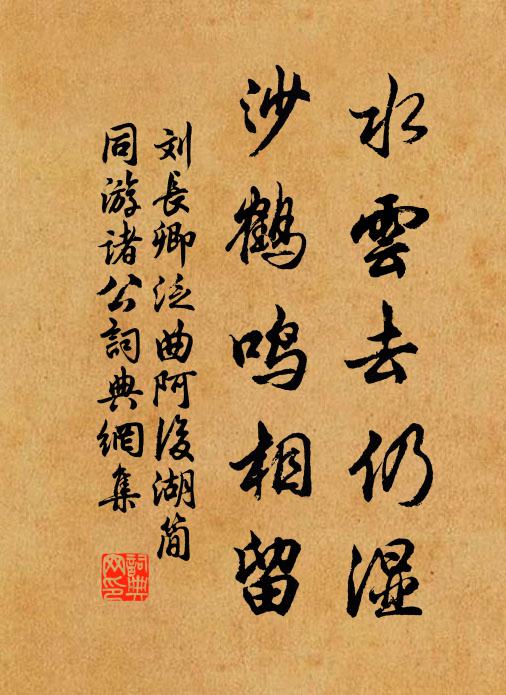 水雲去仍湿
沙鶴鳴相留
刘長卿泛曲阿後湖简
同游诸公詞典網集
詞典网印